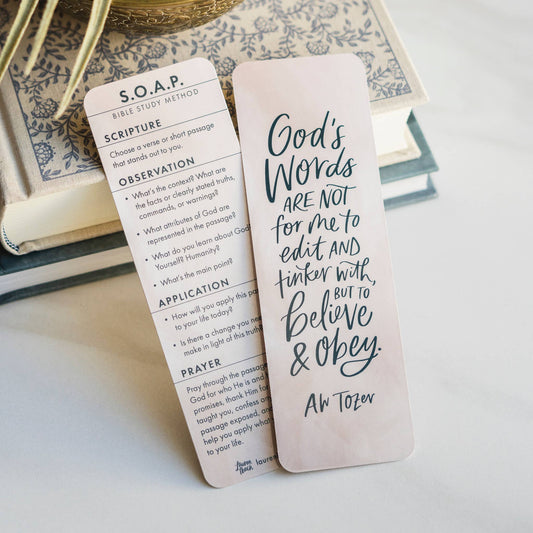 S.O.A.P.
BIBLE STUDY METHOD
SCRIPTURE
Choose a verse or short passage
that stands out to you.
OBSERVATION
• What's the context? What are
the facts or clearly stated truths,
commands, or warnings?
• What attributes of God are
represented in the passage?
• What do you learn about God?
Yourself? Humanity?
• What's the main point?
APPLICATION
• How will you apply this pa
to your life today?
• Is there a change you nee
make in light of this truth?
PRAYER
Pray through the passage
God for who He is and
promises, thank Him for
taught you, confess an
passage exposed, and
help you apply what
to your life.
lauren
God's
Words
ARE NOT
for me to
edit AND
tinker with,
BUT TO
believe
& obey.
AW Tozer